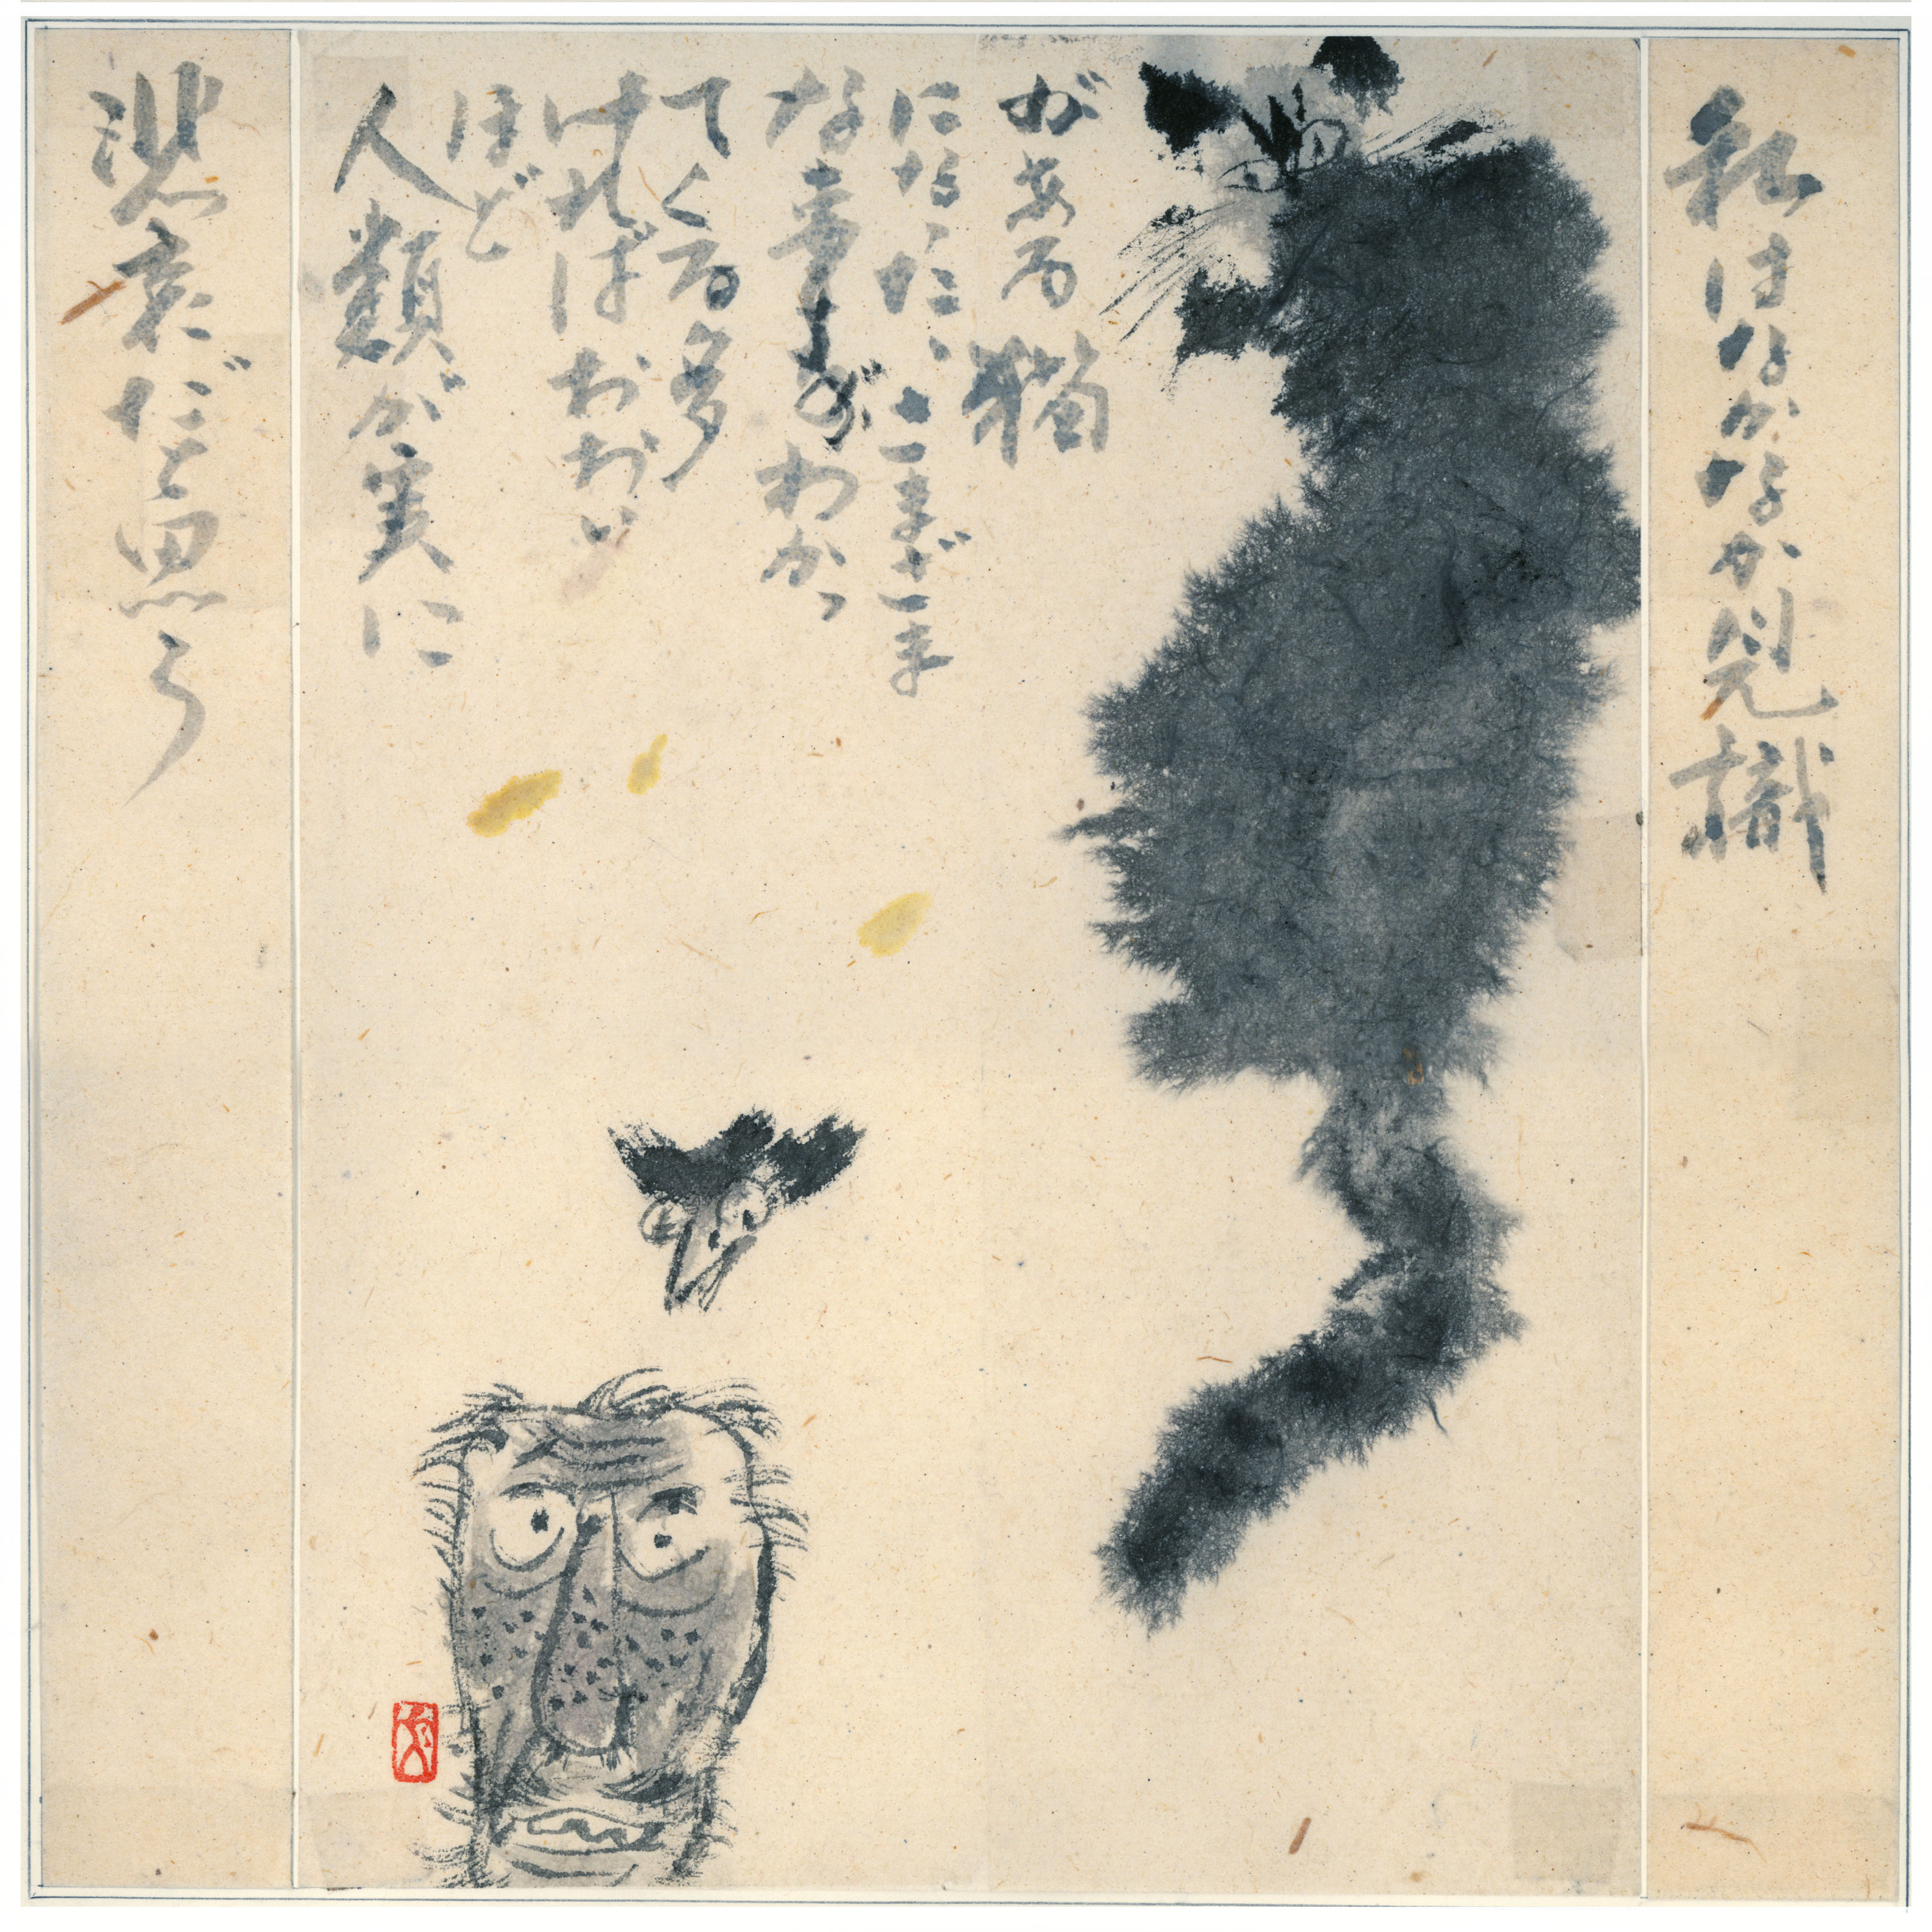 私はなかなか見識
がある猫
になった、さまざま
な事がわかっ
てくる多
ければおおい
ほど
人類が実に
悲哀だと思う